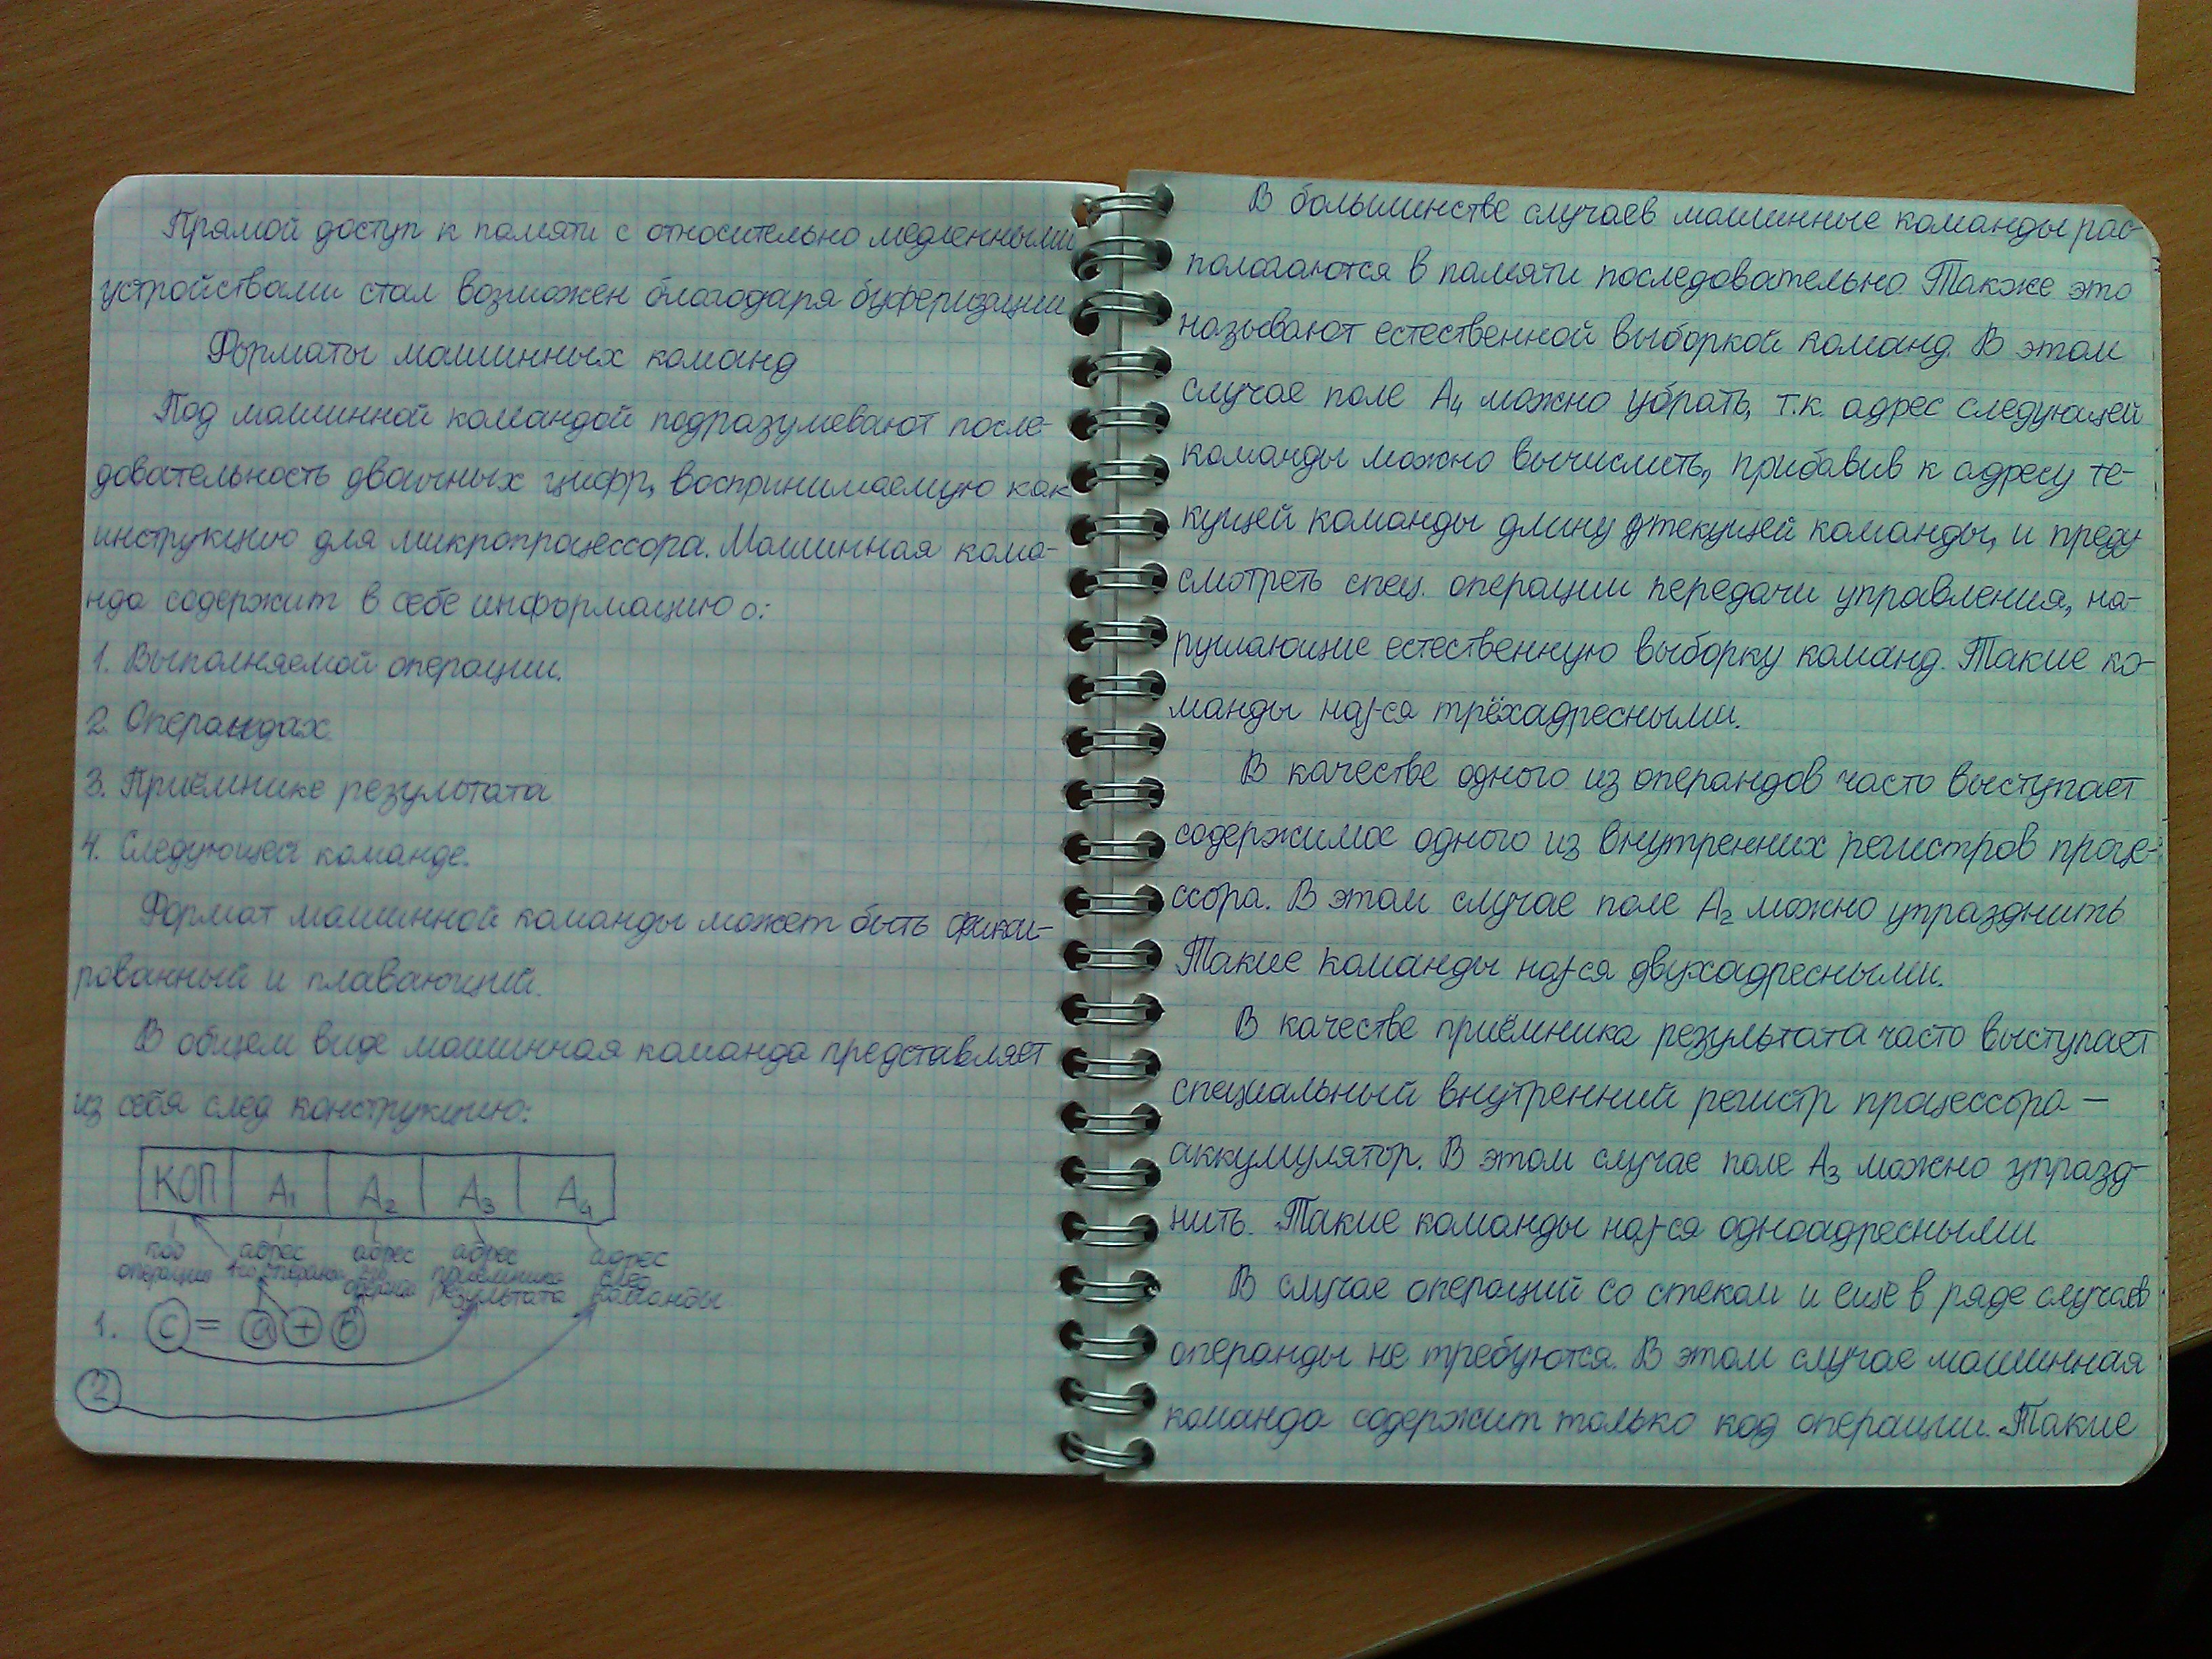 Прямой доступ к памяти с относительно медленными
устройствами стал возможен благодаря буферизации
Форматы машинных команд
Под машинной командой подразумевают после-
довательность двоичных цифр, воспринимаемую как
инструкцию для микропроцессора. Машинная кома-
нда содержит в себе информацию о:
1. Выполняемой операции.
2. Операндах.
3. Приёмнике результата
4. Следующей команде.
Формат машинной команды может быть фикси-
рованный и плавающий.
В общем виде машинная команда представляет
из себя след конструкцию:
КОП A₁ A₂ A₃ A₄
код адрес адрес адрес адрес
операции 1го операнда 2го операнда приёмника результата след команды
1. c = a + b
2
В большинстве случаев машинные команды рас-
полагаются в памяти последовательно. Также это
называют естественной выборкой команд. В этом
случае поле A₄ можно убрать, т.к. адрес следующей
команды можно вычислить, прибавив к адресу те-
кущей команды длину текущей команды, и преду
смотреть спец. операции передачи управления, на-
рушающие естественную выборку команд. Такие ко-
манды наз-ся трёхадресными.
В качестве одного из операндов часто выступает
содержимое одного из внутренних регистров проце-
ссора. В этом случае поле A₂ можно упразднить
Такие команды наз-ся двухадресными.
В качестве приёмника результата часто выступает
специальный внутренний регистр процессора –
аккумулятор. В этом случае поле A₃ можно упразд-
нить. Такие команды наз-ся одноадресными.
В случае операций со стеком и ещё в ряде случаев
операнды не требуются. В этом случае машинная
команда содержит только код операции. Такие